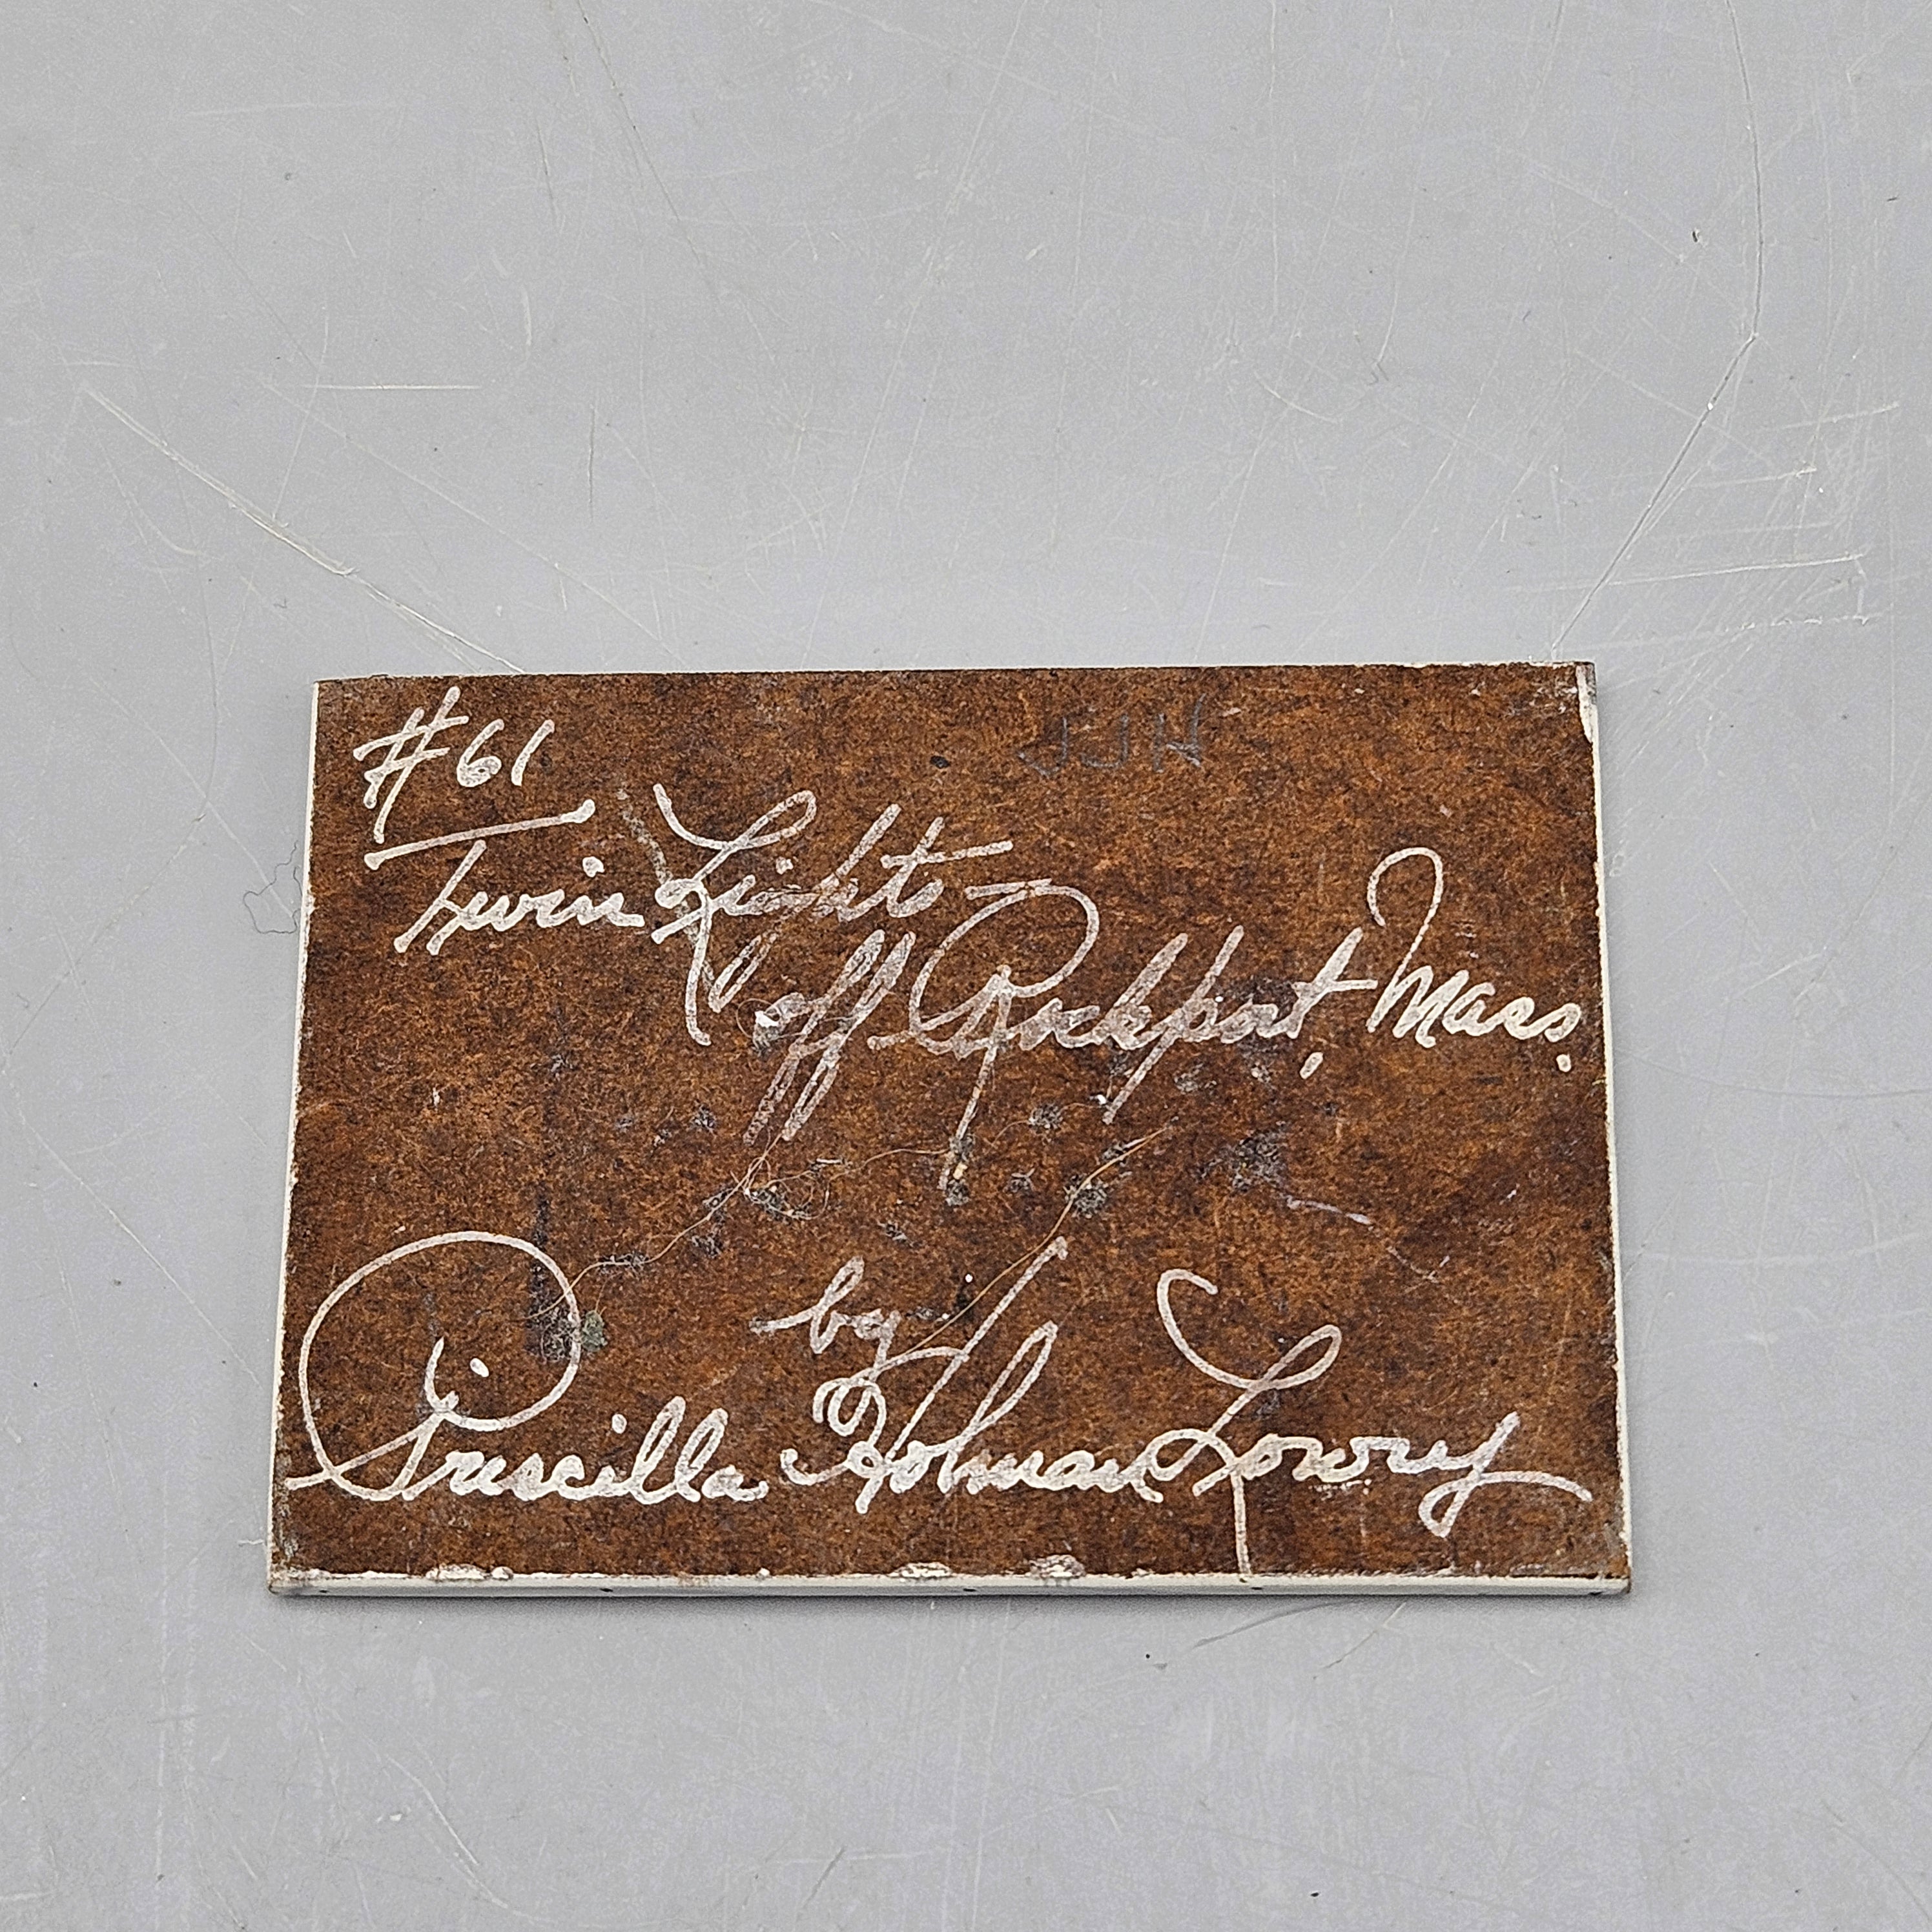 #61
JJH
Twin Lights -
off Rockport, Mass.
by
Priscilla Holman Lowry